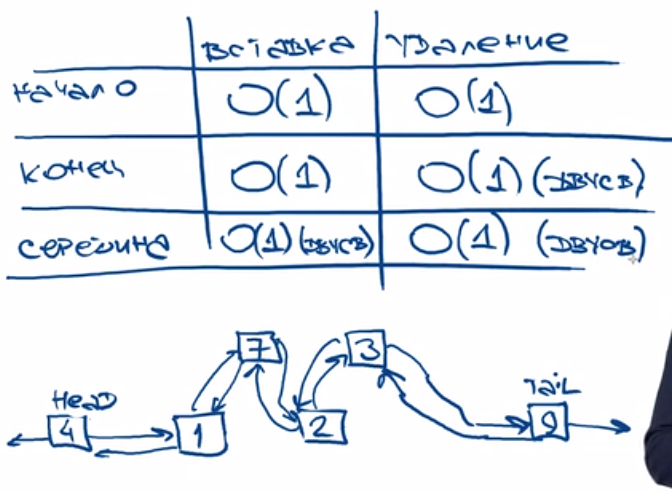 вставка удаление
начало O(1) O(1)
конец O(1) O(1) (двусв)
середина O(1) (двусв) O(1) (двусв)
7 3
HeaD TaiL
4 1 2 9